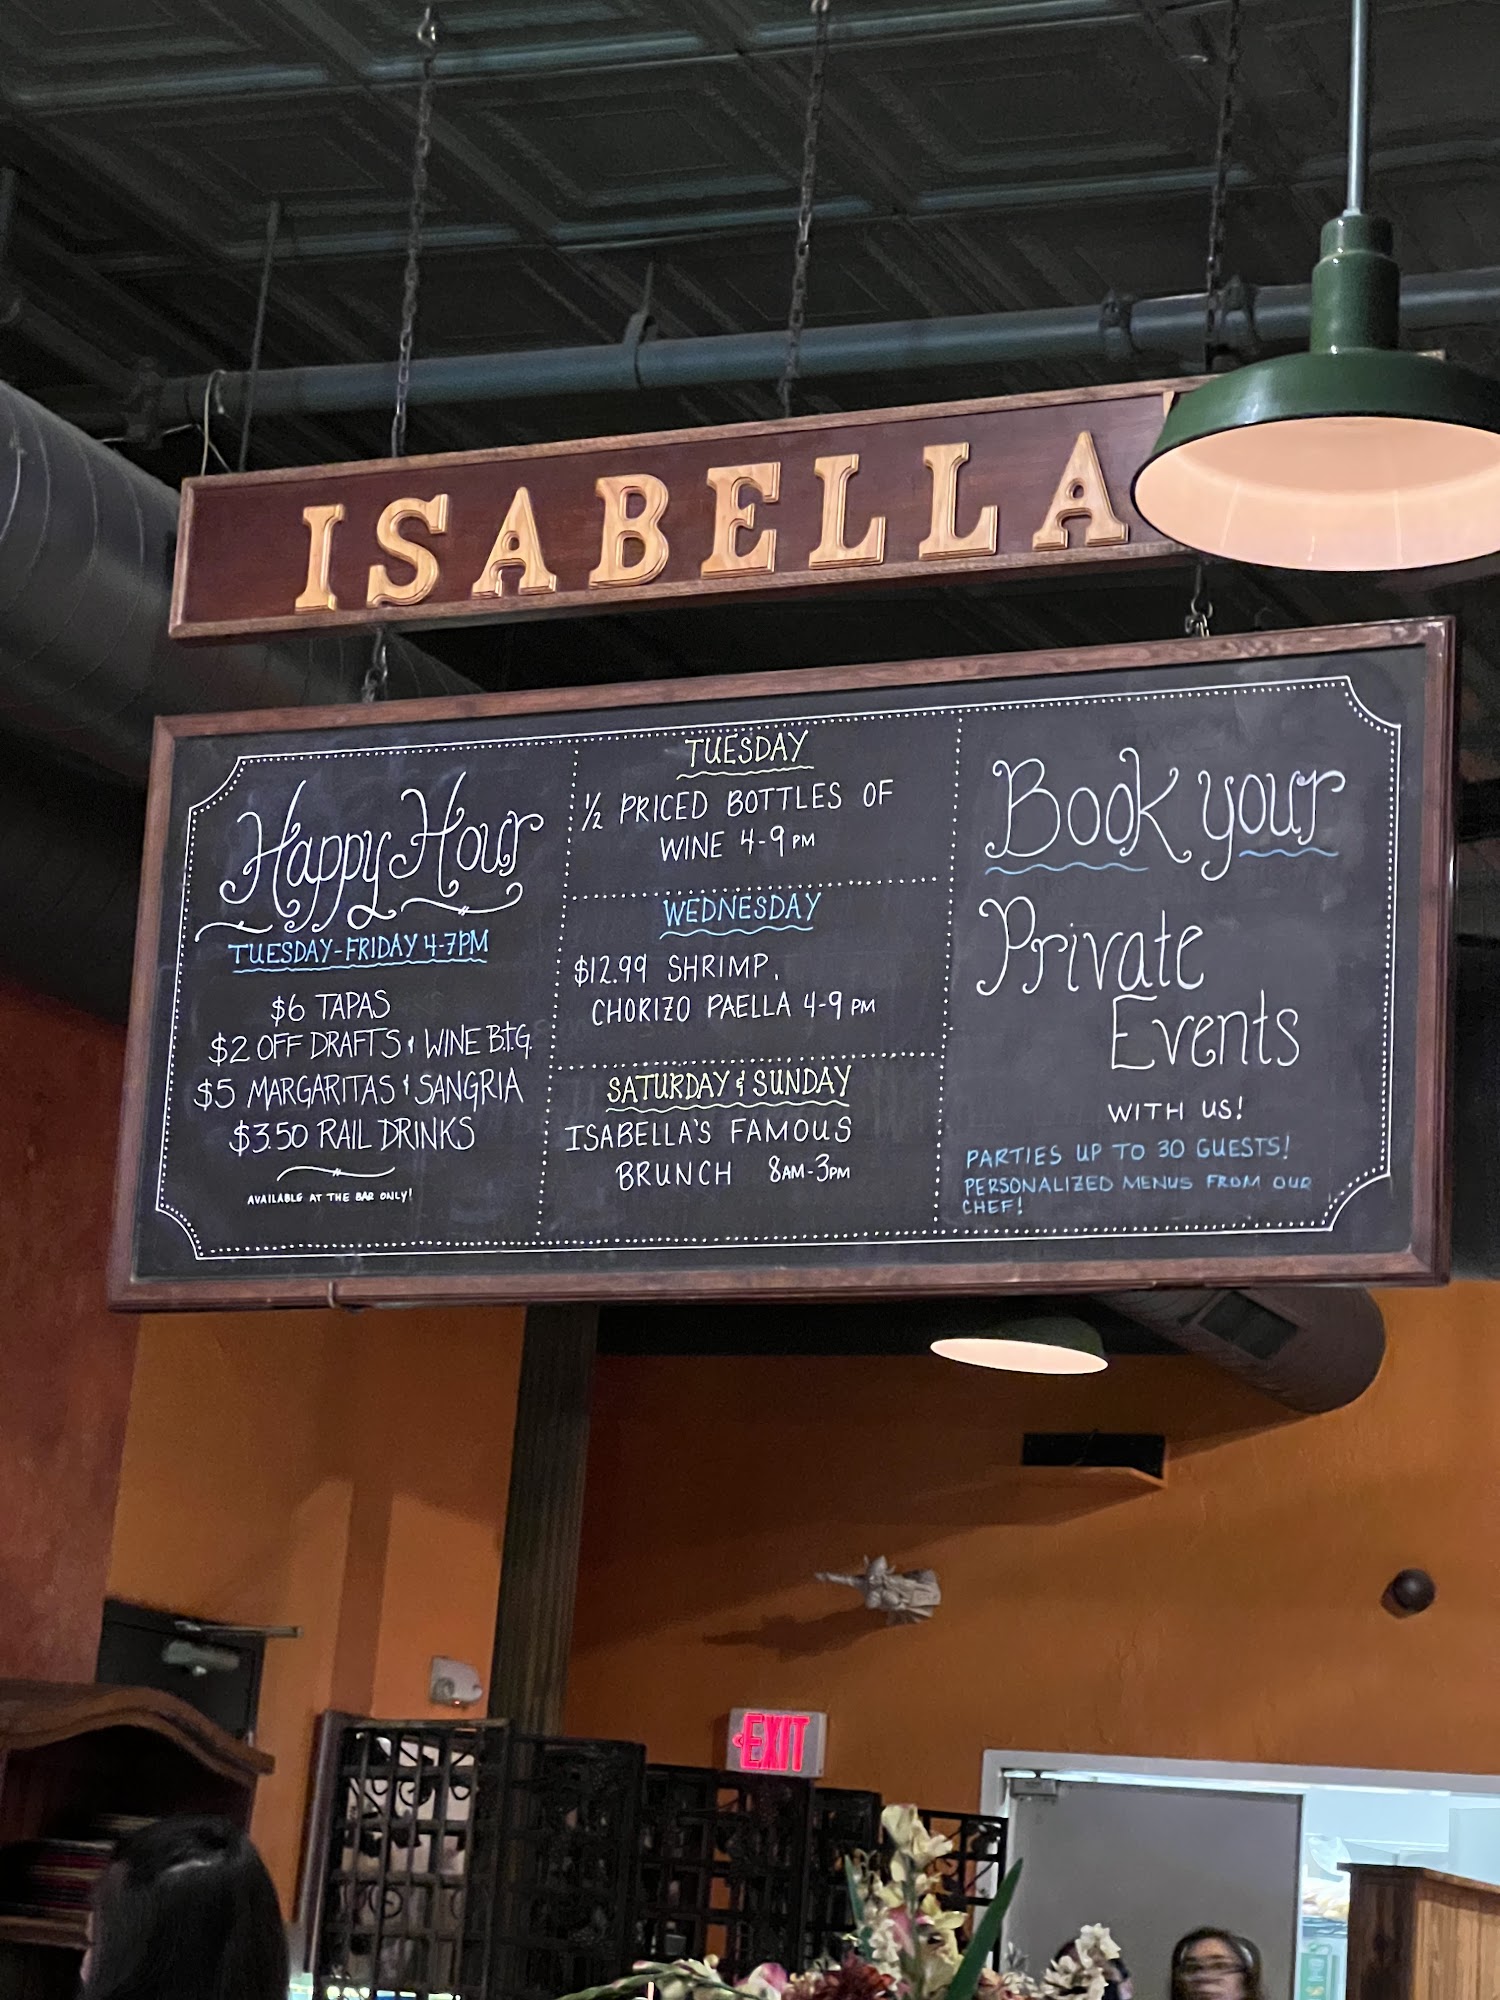 ISABELLA
Happy Hour
TUESDAY-FRIDAY 4-7PM
$6 TAPAS
$2 OFF DRAFTS & WINE B.T.G.
$5 MARGARITAS & SANGRIA
$3.50 RAIL DRINKS
AVAILABLE AT THE BAR ONLY!
TUESDAY
1/2 PRICED BOTTLES OF
WINE 4-9 PM
WEDNESDAY
$12.99 SHRIMP,
CHORIZO PAELLA 4-9 PM
SATURDAY & SUNDAY
ISABELLA'S FAMOUS
BRUNCH 8AM-3PM
Book your
Private
Events
WITH US!
PARTIES UP TO 30 GUESTS!
PERSONALIZED MENUS FROM OUR
CHEF!
EXIT